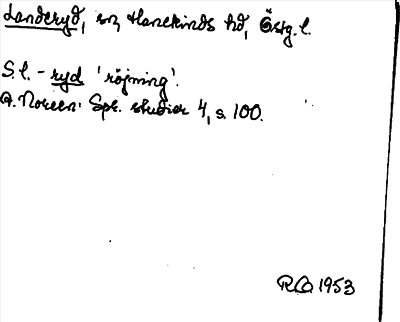 Landeryd, sn, Hanekinds hd, Östg. l.
S. l. - ryd 'röjning'.
A. Noreen: Spr. studier 4, s. 100.
1953